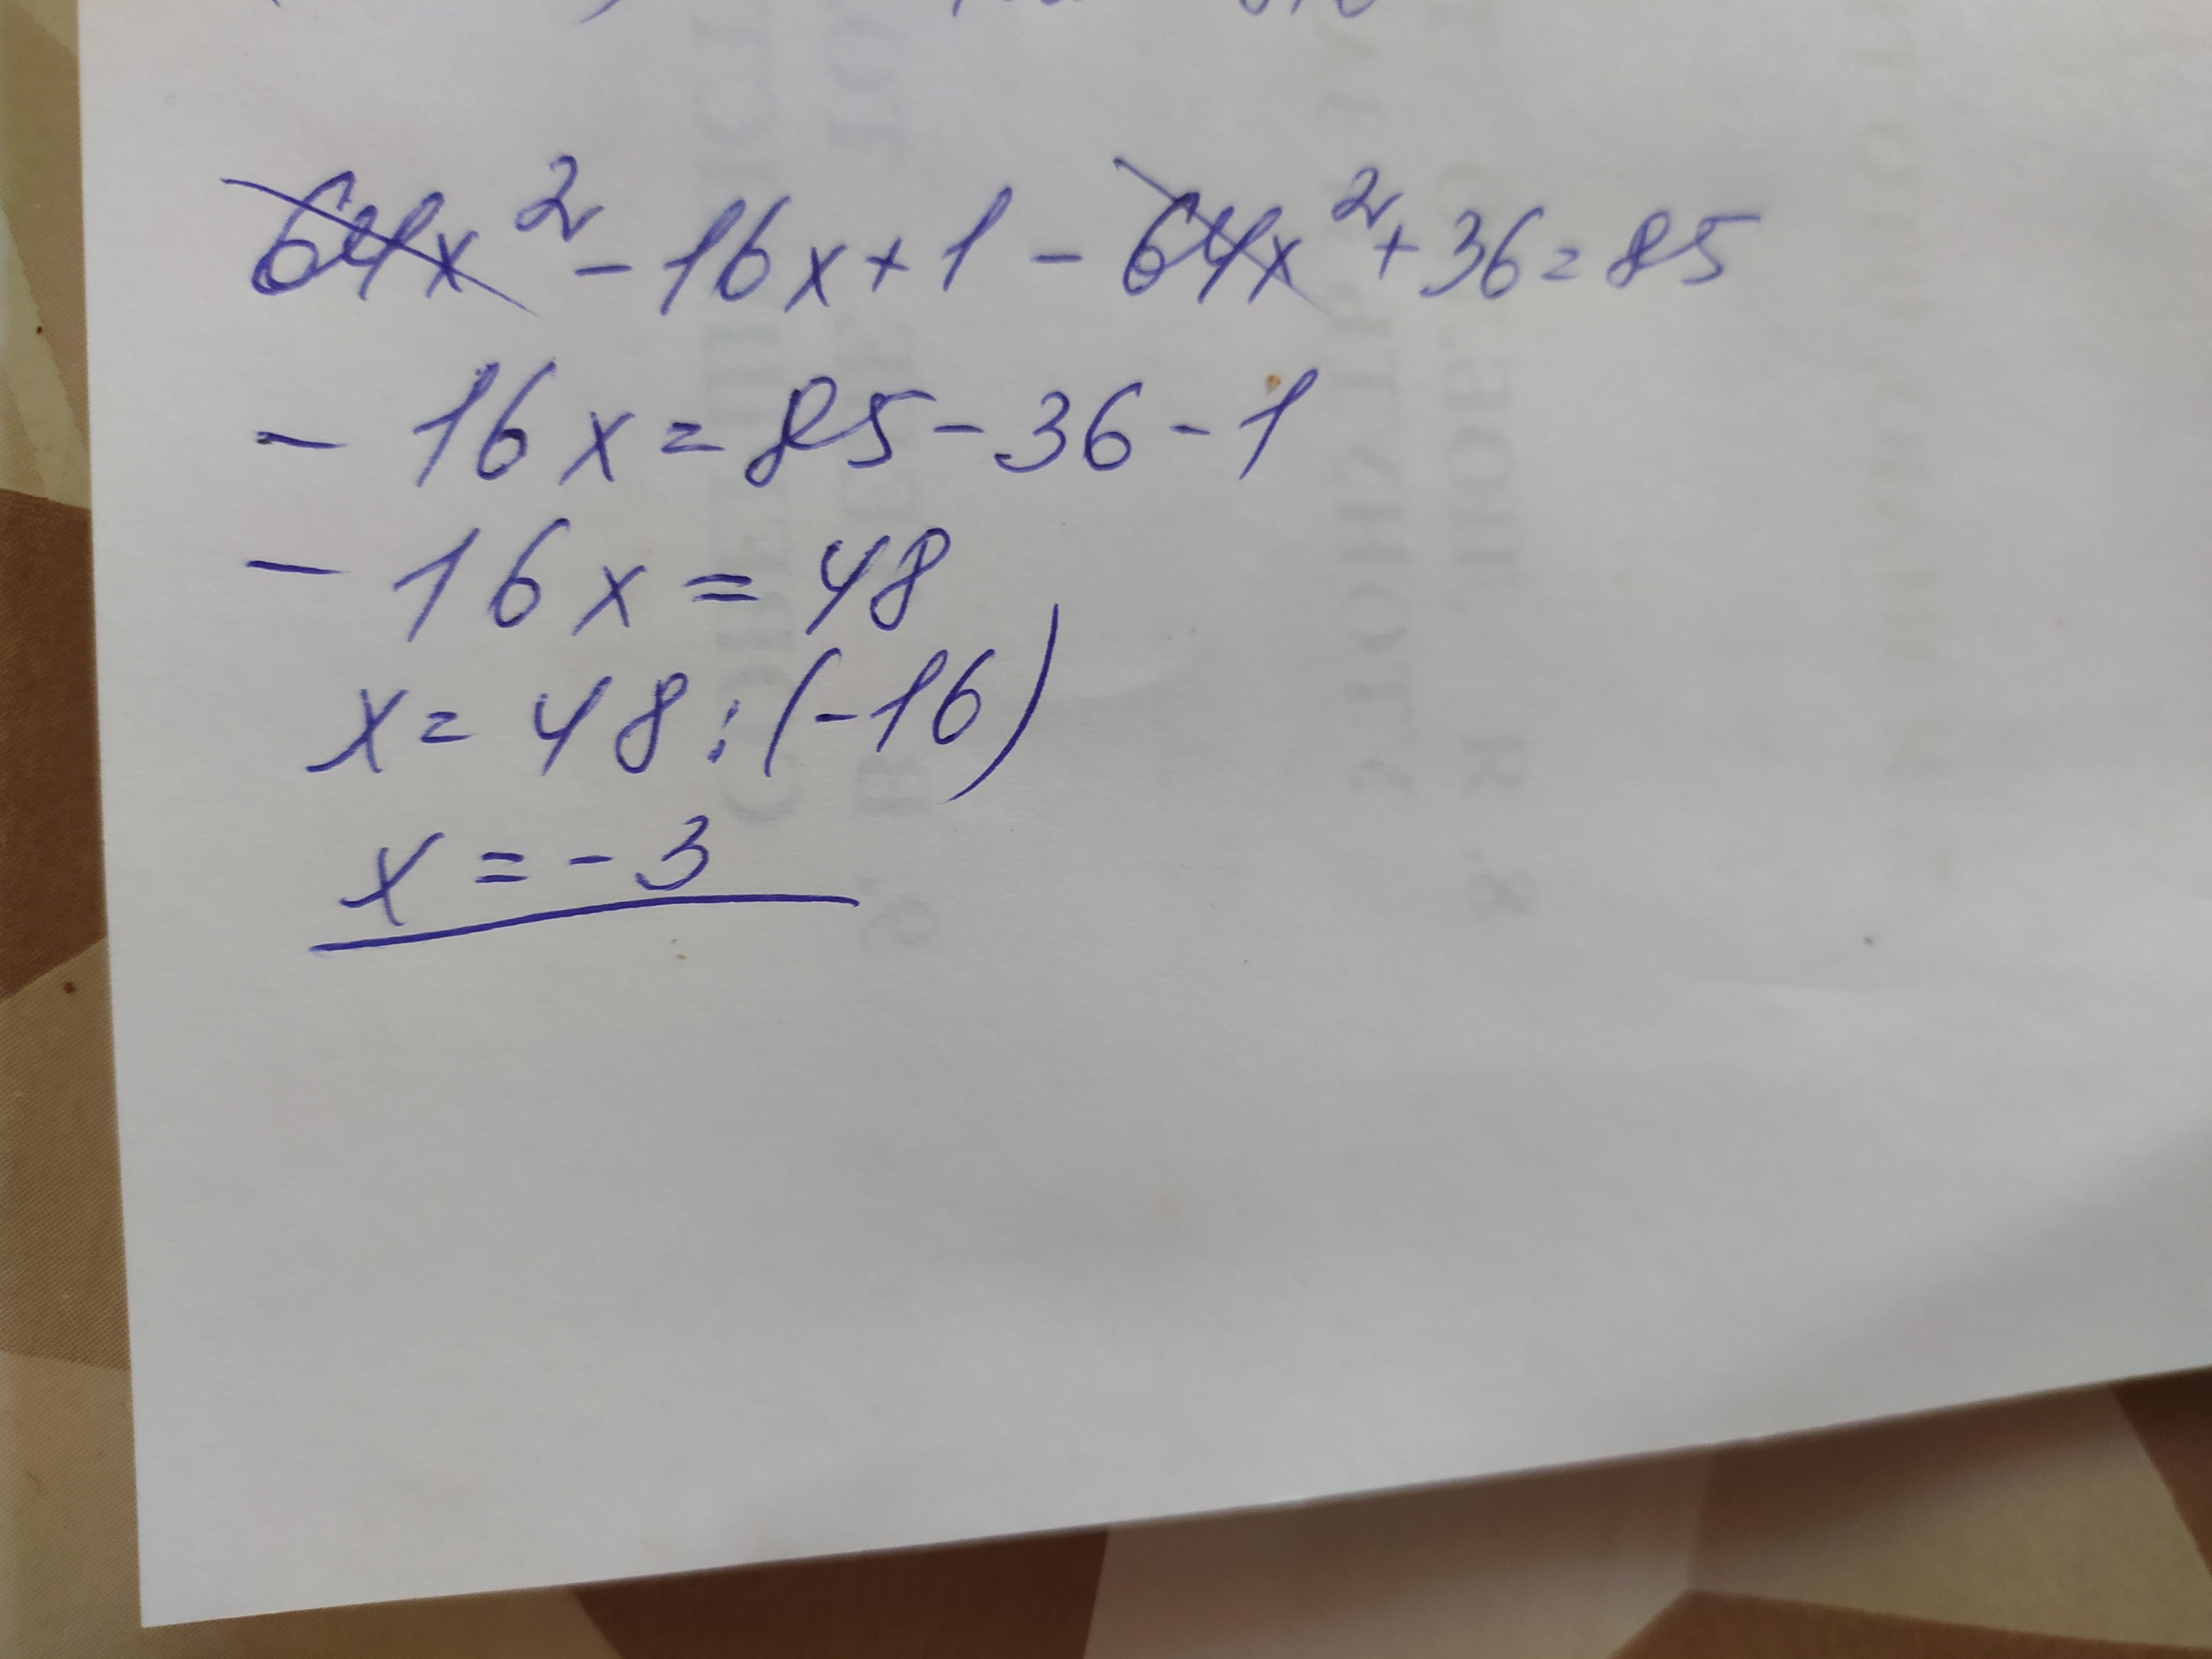 64x² - 16x + 1 - 64x² + 36 = 85
- 16x = 85 - 36 - 1
- 16x = 48
x = 48 : (-16)
x = -3